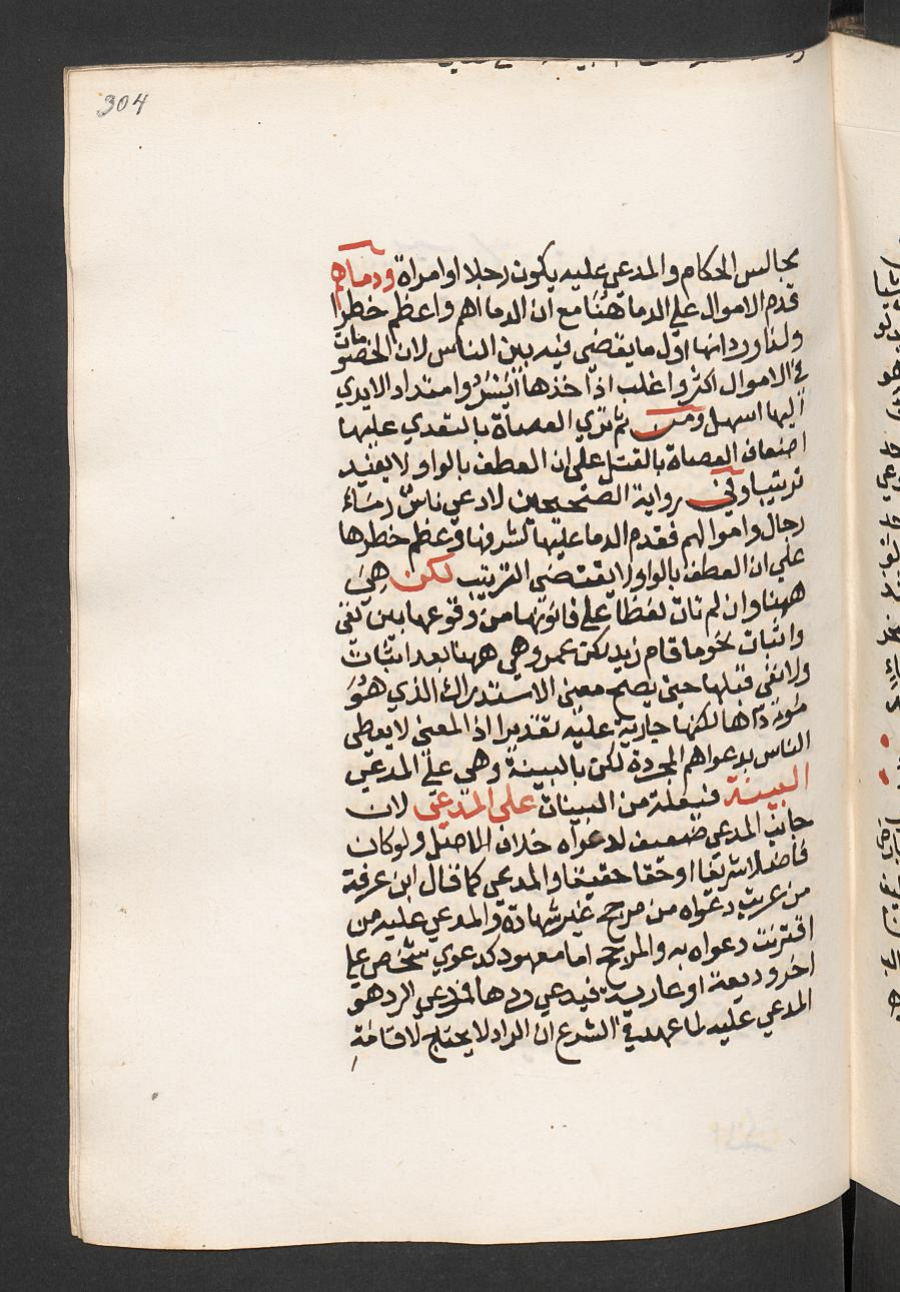 304
مجالس الحكام والمدعي عليه يكون رجلا او امراة ودماهم
قدم الاموال علي الدما هنا مع ان الدما اهم واعظم خطرا
ولذا ورد انها اول ما يقضي فيه بين الناس لان الخصومات
في الاموال اكثر واغلب اذ اخذها ايسر وامتداد الايدي
اليها اسهل ومن ثم تري العصاة بالتعدي عليها
اضعاف العصاة بالقتل علي ان العطف بالواو لا يفيد
ترتيبا وفي رواية الصحيحين لادعي ناس دماء
رجال واموالهم فقدم الدما عليها لشرفها وعظم خطرها
علي ان العطف بالواو لا يقتضي الترتيب لكن هي
ههنا وان لم تات لفظا علي قانونها من وقوعها بين نفي
واثبات نحو ما قام زيد لكن عمرو هي ههنا بعد اثبات
ولا نفي قبلها حتي يصح معني الاستدراك الذي هو
مؤداها لكنها جارية عليه تقديرا اذ المعني لا يعطي
الناس بدعواهم المجردة لكن بالبينة وهي علي المدعي
البينة فيعلة من البينات علي المدعي لان
جانب المدعي ضعيف لدعواه خلاف الاصل ولو كان
فاضلا شريفا او حقا حقيقا والمدعي كما قال ابن عرفة
من عريت دعواه من مرجح غير شهادة والمدعي عليه من
اقترنت دعواه به والمرجح اما معهود كدعوي شخص علي
اخر وديعة او عارية فيدعي ردها فمدعي الرد هو
المدعي عليه لما عهد في الشرع ان الراد لا يحتاج لاقامة